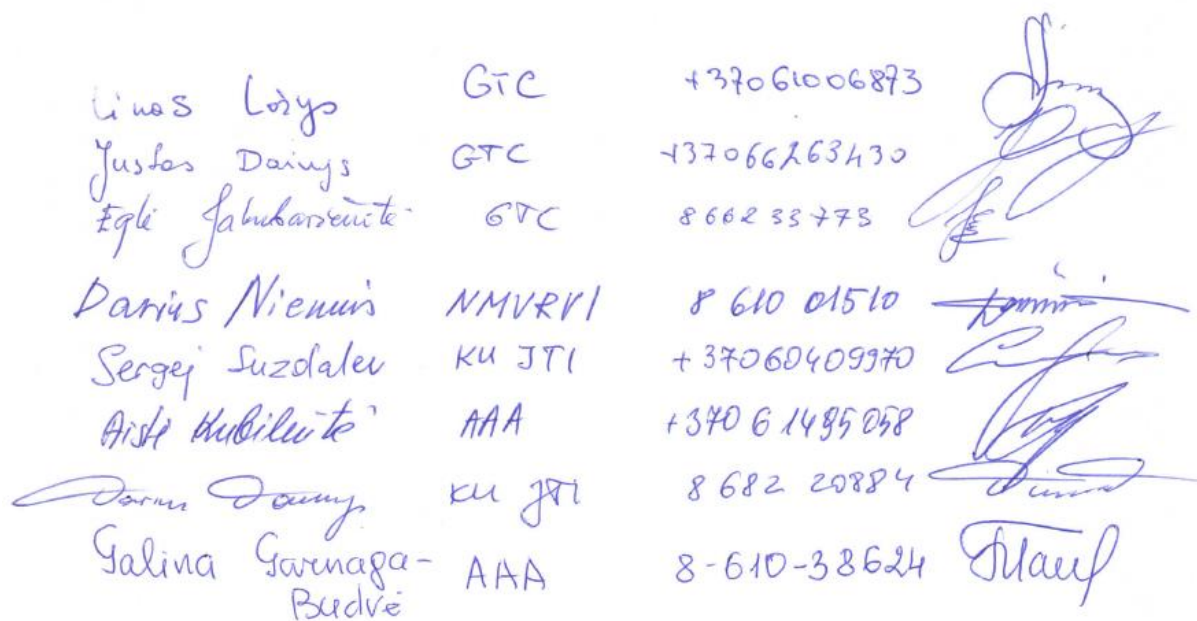 Linas Ložys GTC +37061006873
Justas Dainys GTC +37066263430
Eglė Jakubavičiūtė GTC 866233773
Darius Nienius NMVRVI 8 610 01510
Sergej Suzdalev KU JTI +37060409970
Aistė Kubiliūtė AAA +370 61495058
Darius Daunys KU JTI 8 682 20884
Galina Garnaga-
Budvė AAA 8-610-38624